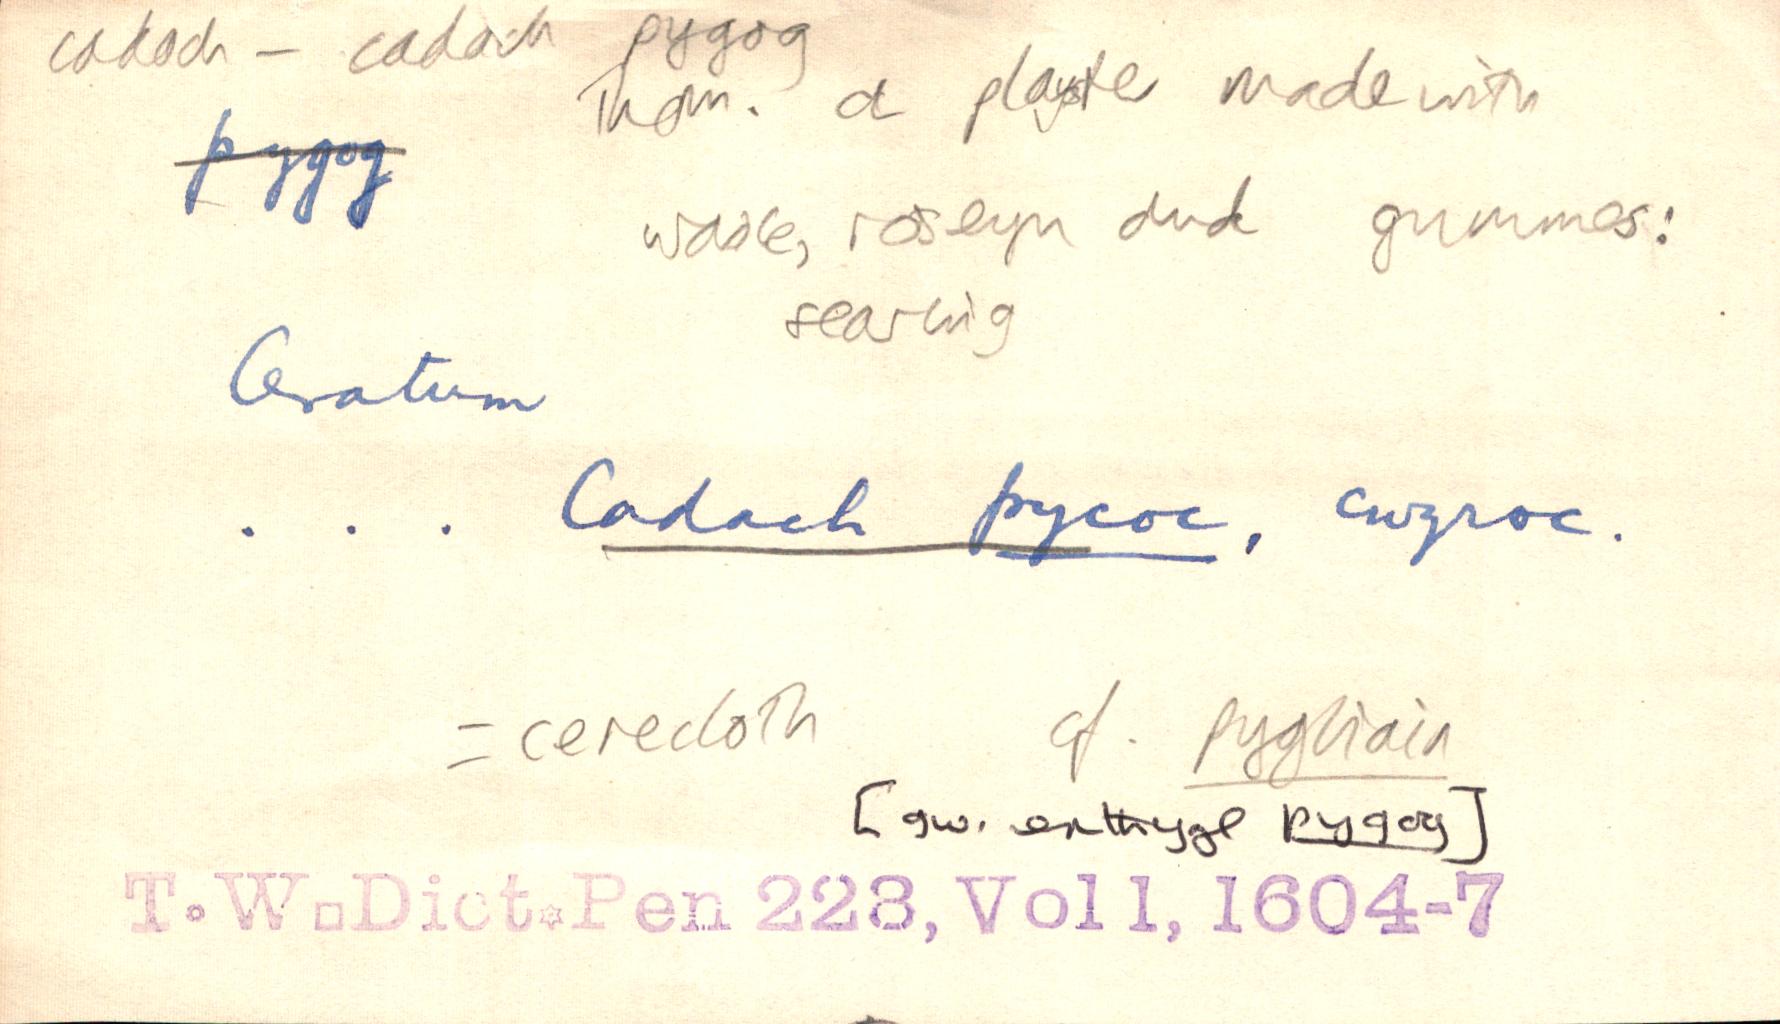 cadach – cadach pygog
Thom. a playster made with
pygog
waxe, roseyn and gummes:
searing
Ceratum
. . . Cadach pycoc, cwyroc.
= cerecloth cf. pygliain
[gw. enthygl pygog]
T.W. Dict. Pen 228, Vol 1, 1604-7